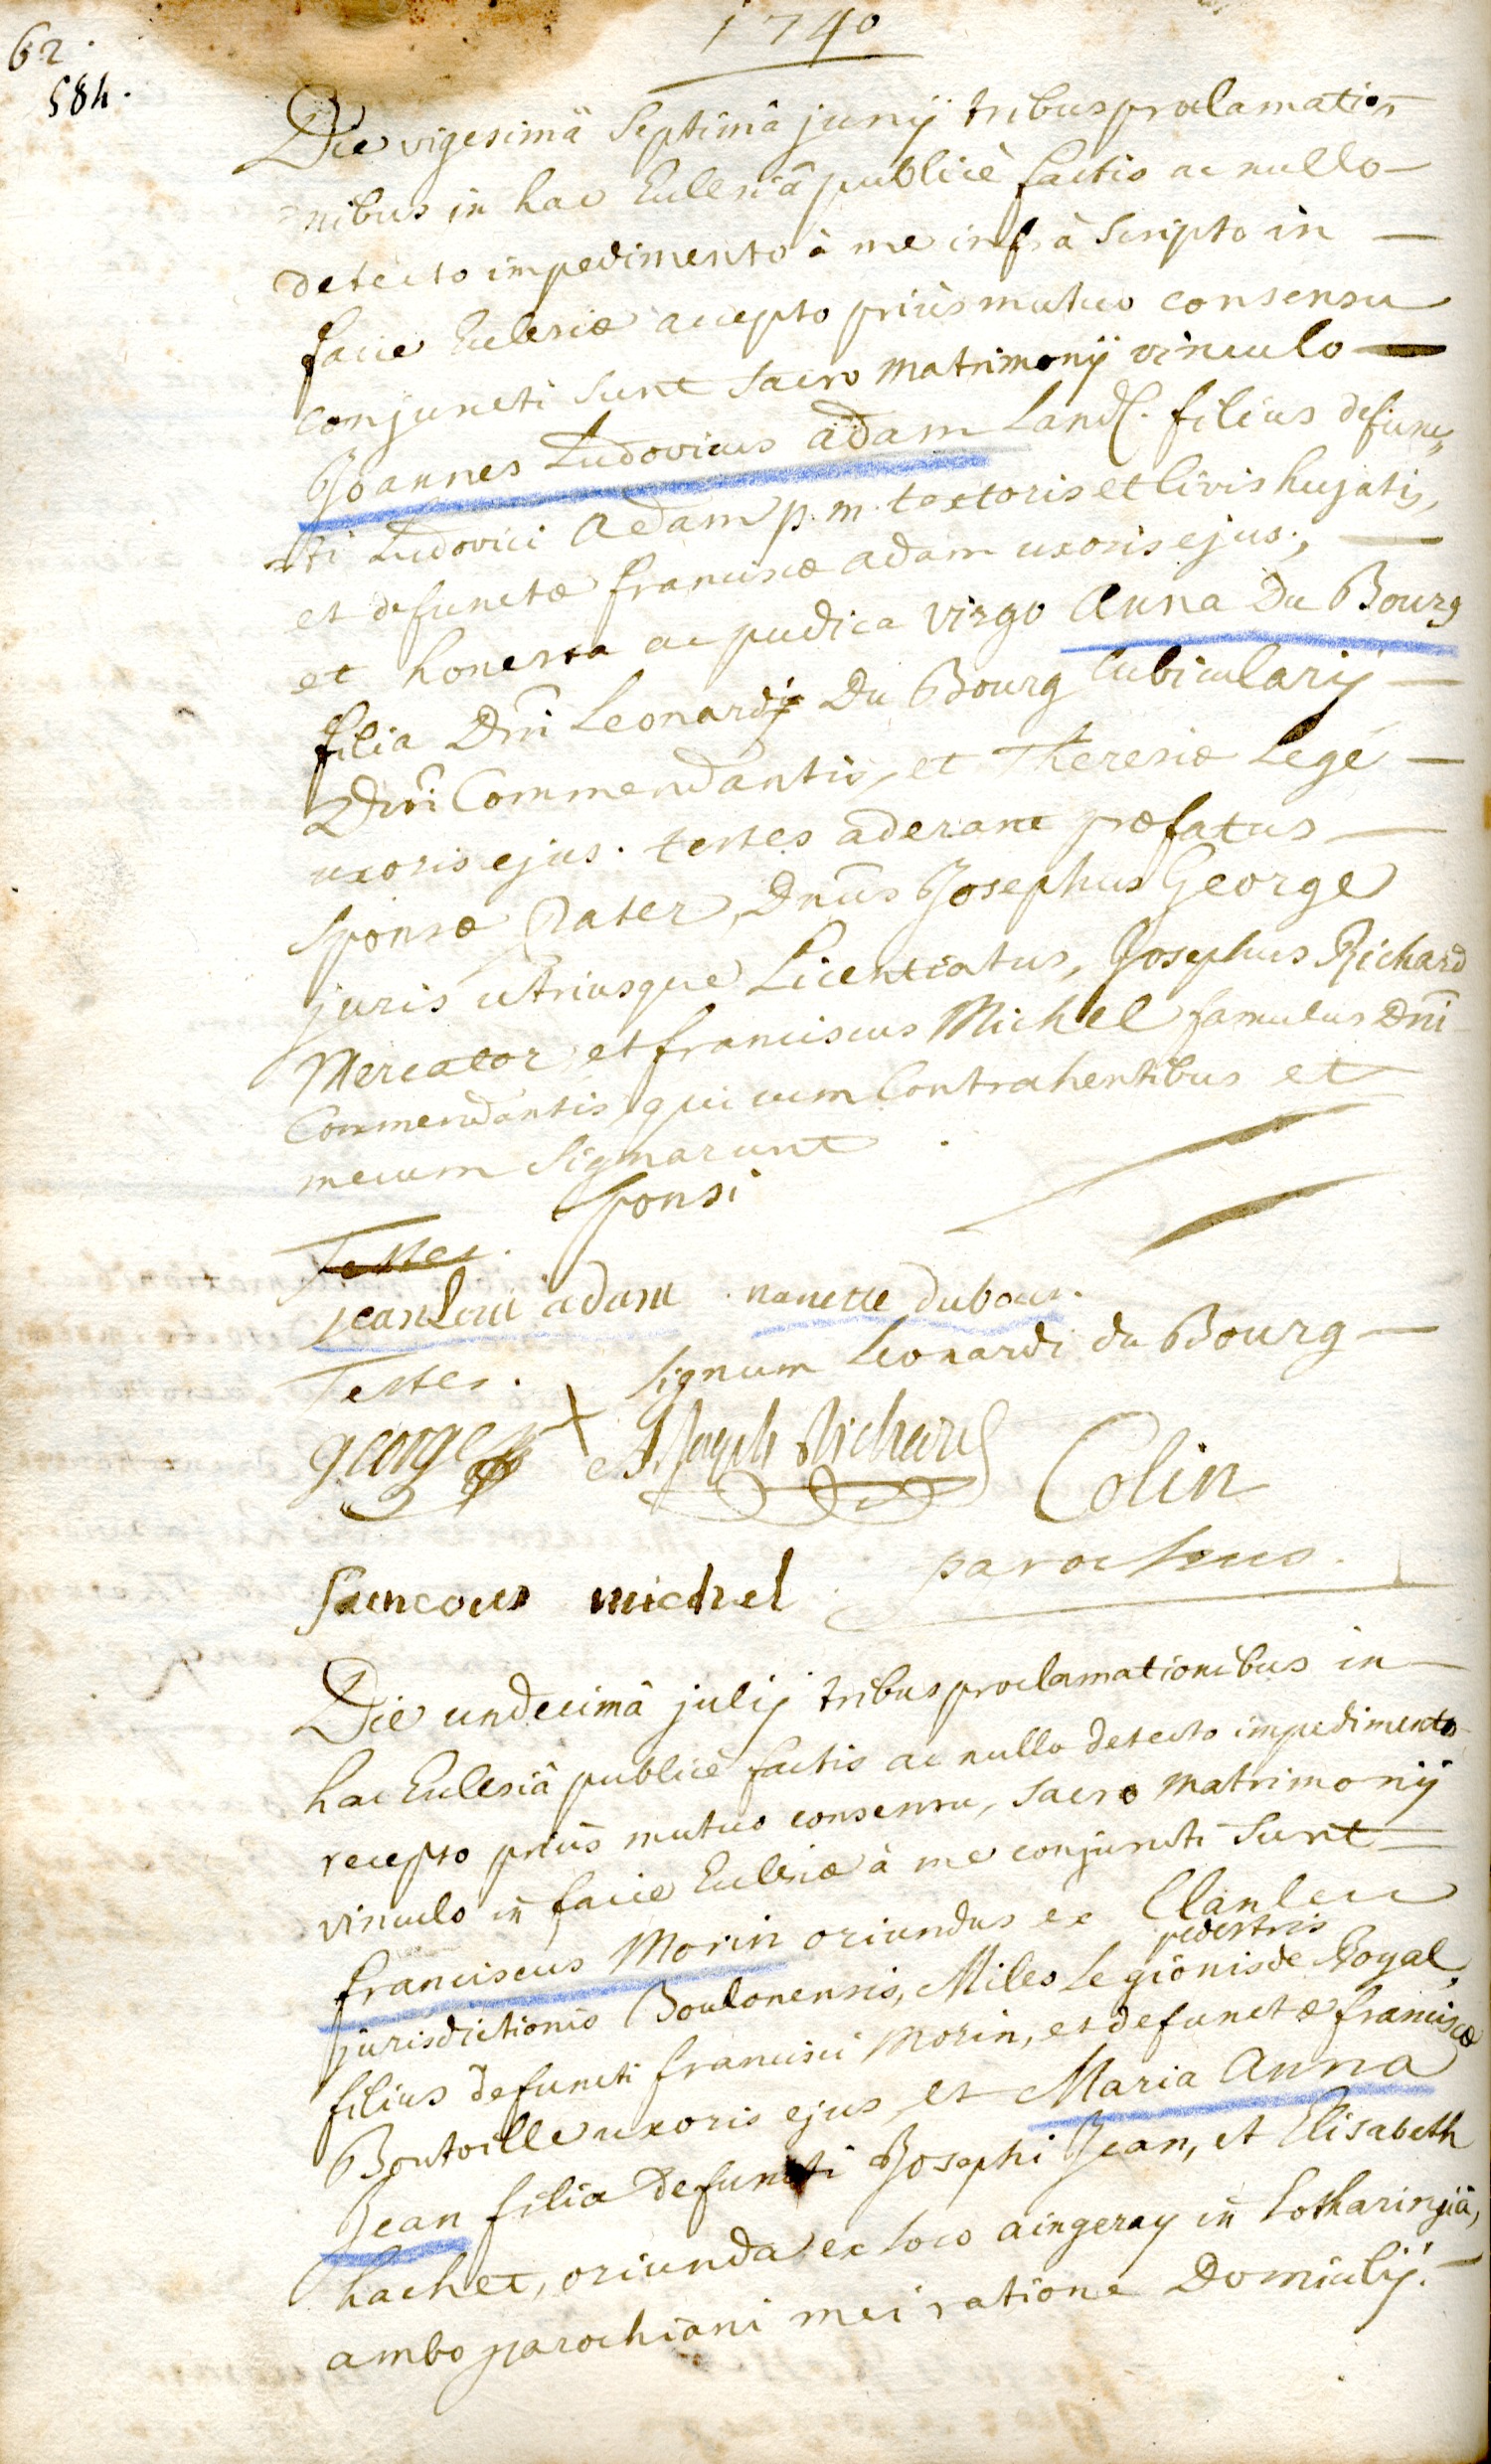 1740
62.
584.
Die vigesimâ Septimâ junij tribus proclamatio
nibus in hac Ecclesiâ publicè factis ac nullo
detecto impedimento à me infrà Scripto in
facie Ecclesiæ accepto priùs mutuo consensu
conjuncti sunt sacro matrimonij vinculo
Joannes Ludovicus adam Land. filius defunc
ti Ludovici Adam p.m. textoris et Civis hujatis,
et defunctæ franciscæ adam uxoris ejus.,
et honesta ac pudica virgo Anna Du Bourg
filia Dni Leonardi Du Bourg Cubicularij
Dni Commendantis, et Theresiæ Legé
uxoris ejus. testes aderant præfatus
Sponsæ Pater, Dnus Josephus George
juris utriusque Licentiatus, Josephus Richard
Mercator et franciscus Michel famulus Dni
Commendantis, qui cum Contrahentibus et
mecum Signarunt
Sponsi
Testes.
jean Loui adam . nanette dubour.
Testes. Signum Leonardi du Bourg
george + Joseph Richard Colin
parochus.
francois michel
Die undecimâ julij tribus proclamationibus in
hac Ecclesiâ publicè factis ac nullo detecto impedimento
recepto priùs mutuo consensu, sacro matrimonij
vinculo in facie Ecclesiæ à me conjuncti sunt
franciscus Morin oriundus ex Clanleu
pedestris
jurisdictionis Boulonensis, Miles Legionis de Royal,
filius defuncti francisci Morin, et defunctæ franciscæ
Boutoille uxoris ejus, et Maria Anna
Jean filia defuncti Josephi Jean, et Elisabeth
hachet, oriunda ex loco aingeray in Lotharingiâ,
ambo parochiani mei ratione Domicilij.